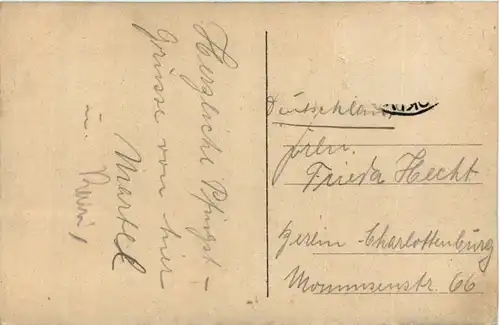 Herzliche Pfingst-
Grüsse von hier
Martel
u.
Deutschland
Frln.
Frieda Hecht
Berlin-Charlottenburg
Mommsenstr. 66